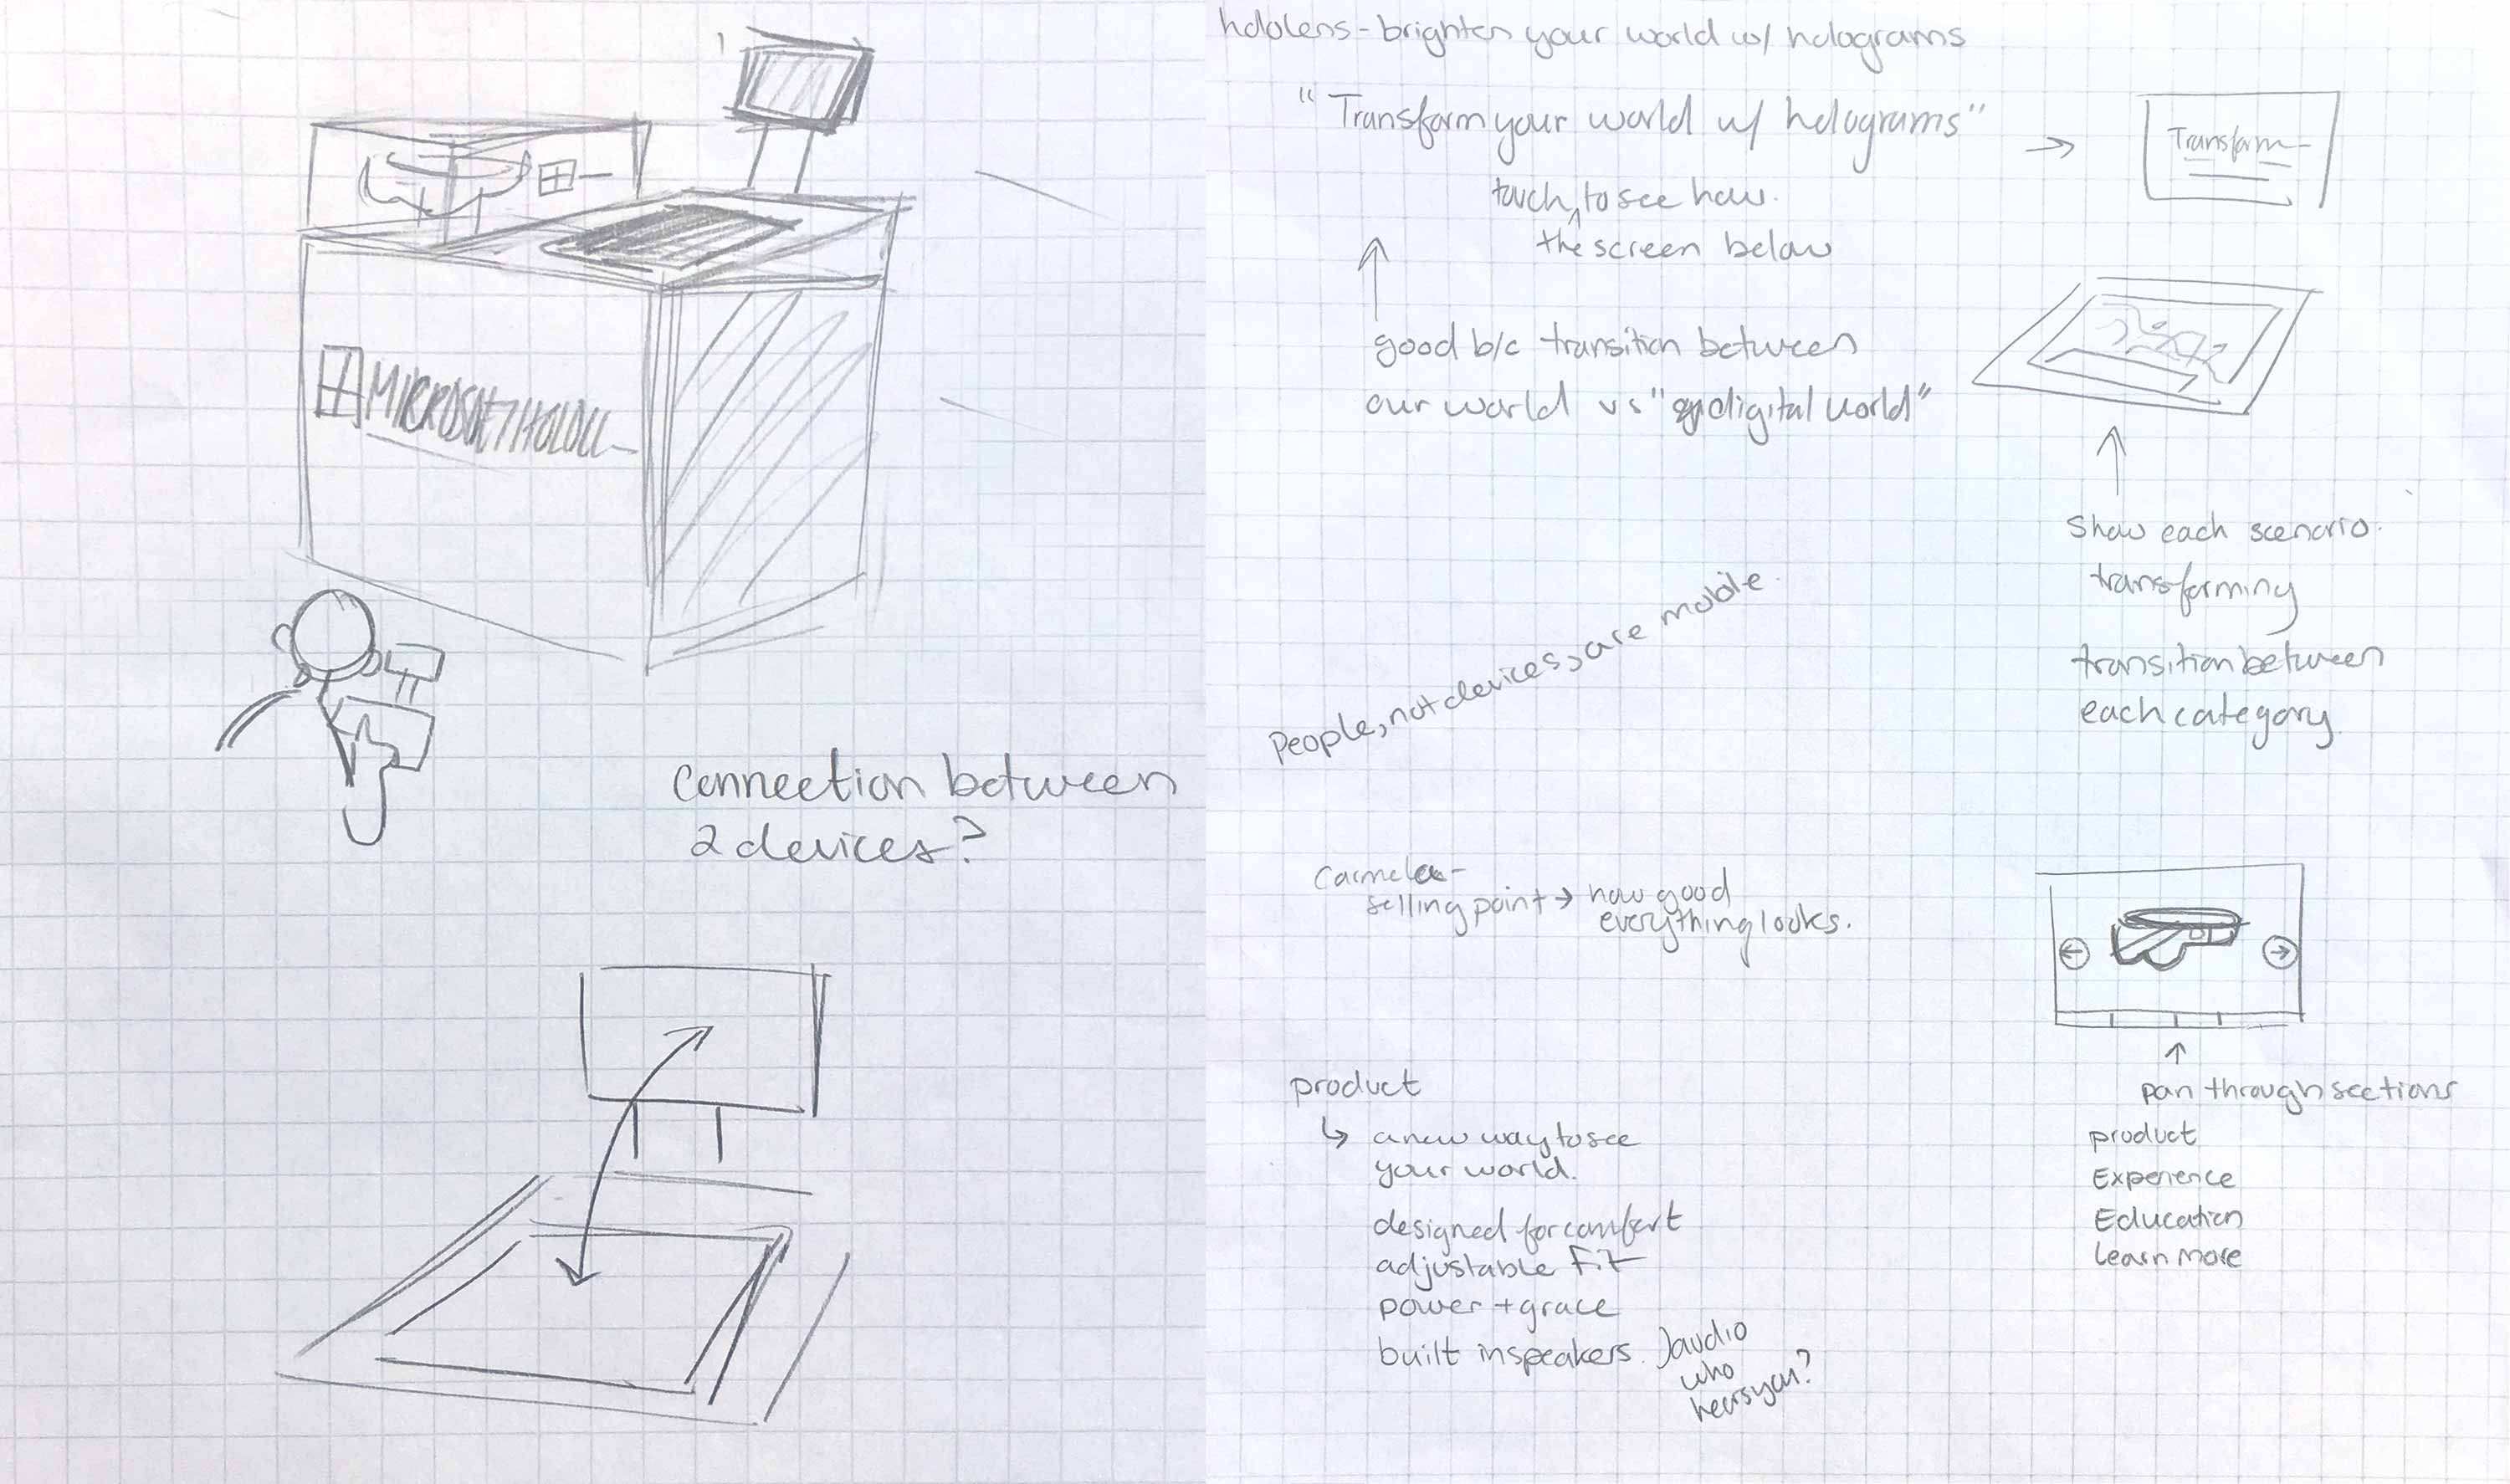 MICROSOFT HOLOL
connection between
2 devices?
hololens - brighten your world w/ holograms
"Transform your world w/ holograms"
→
Transform
touch ^ to see how.
the screen below
good b/c transition between
our world vs "digital world"
Show each scenario.
transforming
transition between
each category
People, not devices, are mobile.
selling point → how good
everything looks.
pan through sections
product
Experience
Education
learn more
product
↳ a new way to see
your world.
designed for comfort
adjustable fit
power + grace
built in speakers.
audio
who
hears you?